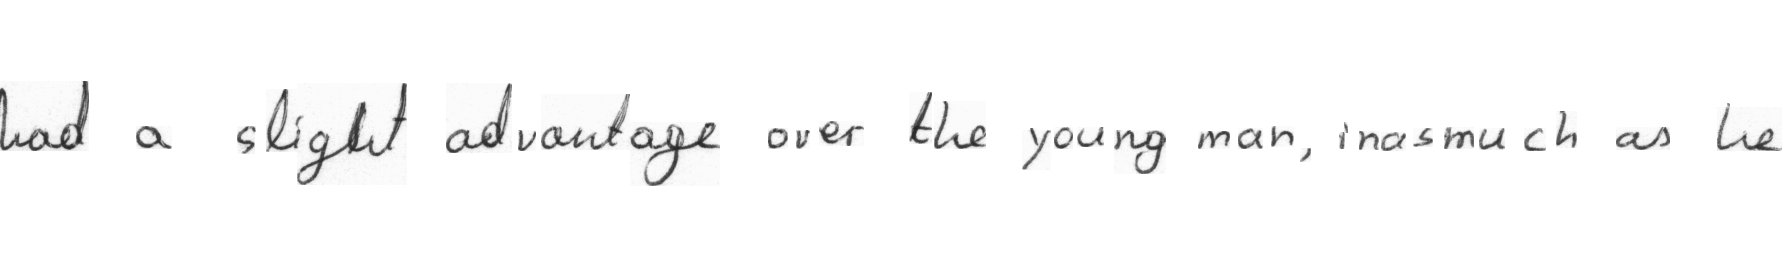 had a slight advantage over the young man, inasmuch as he